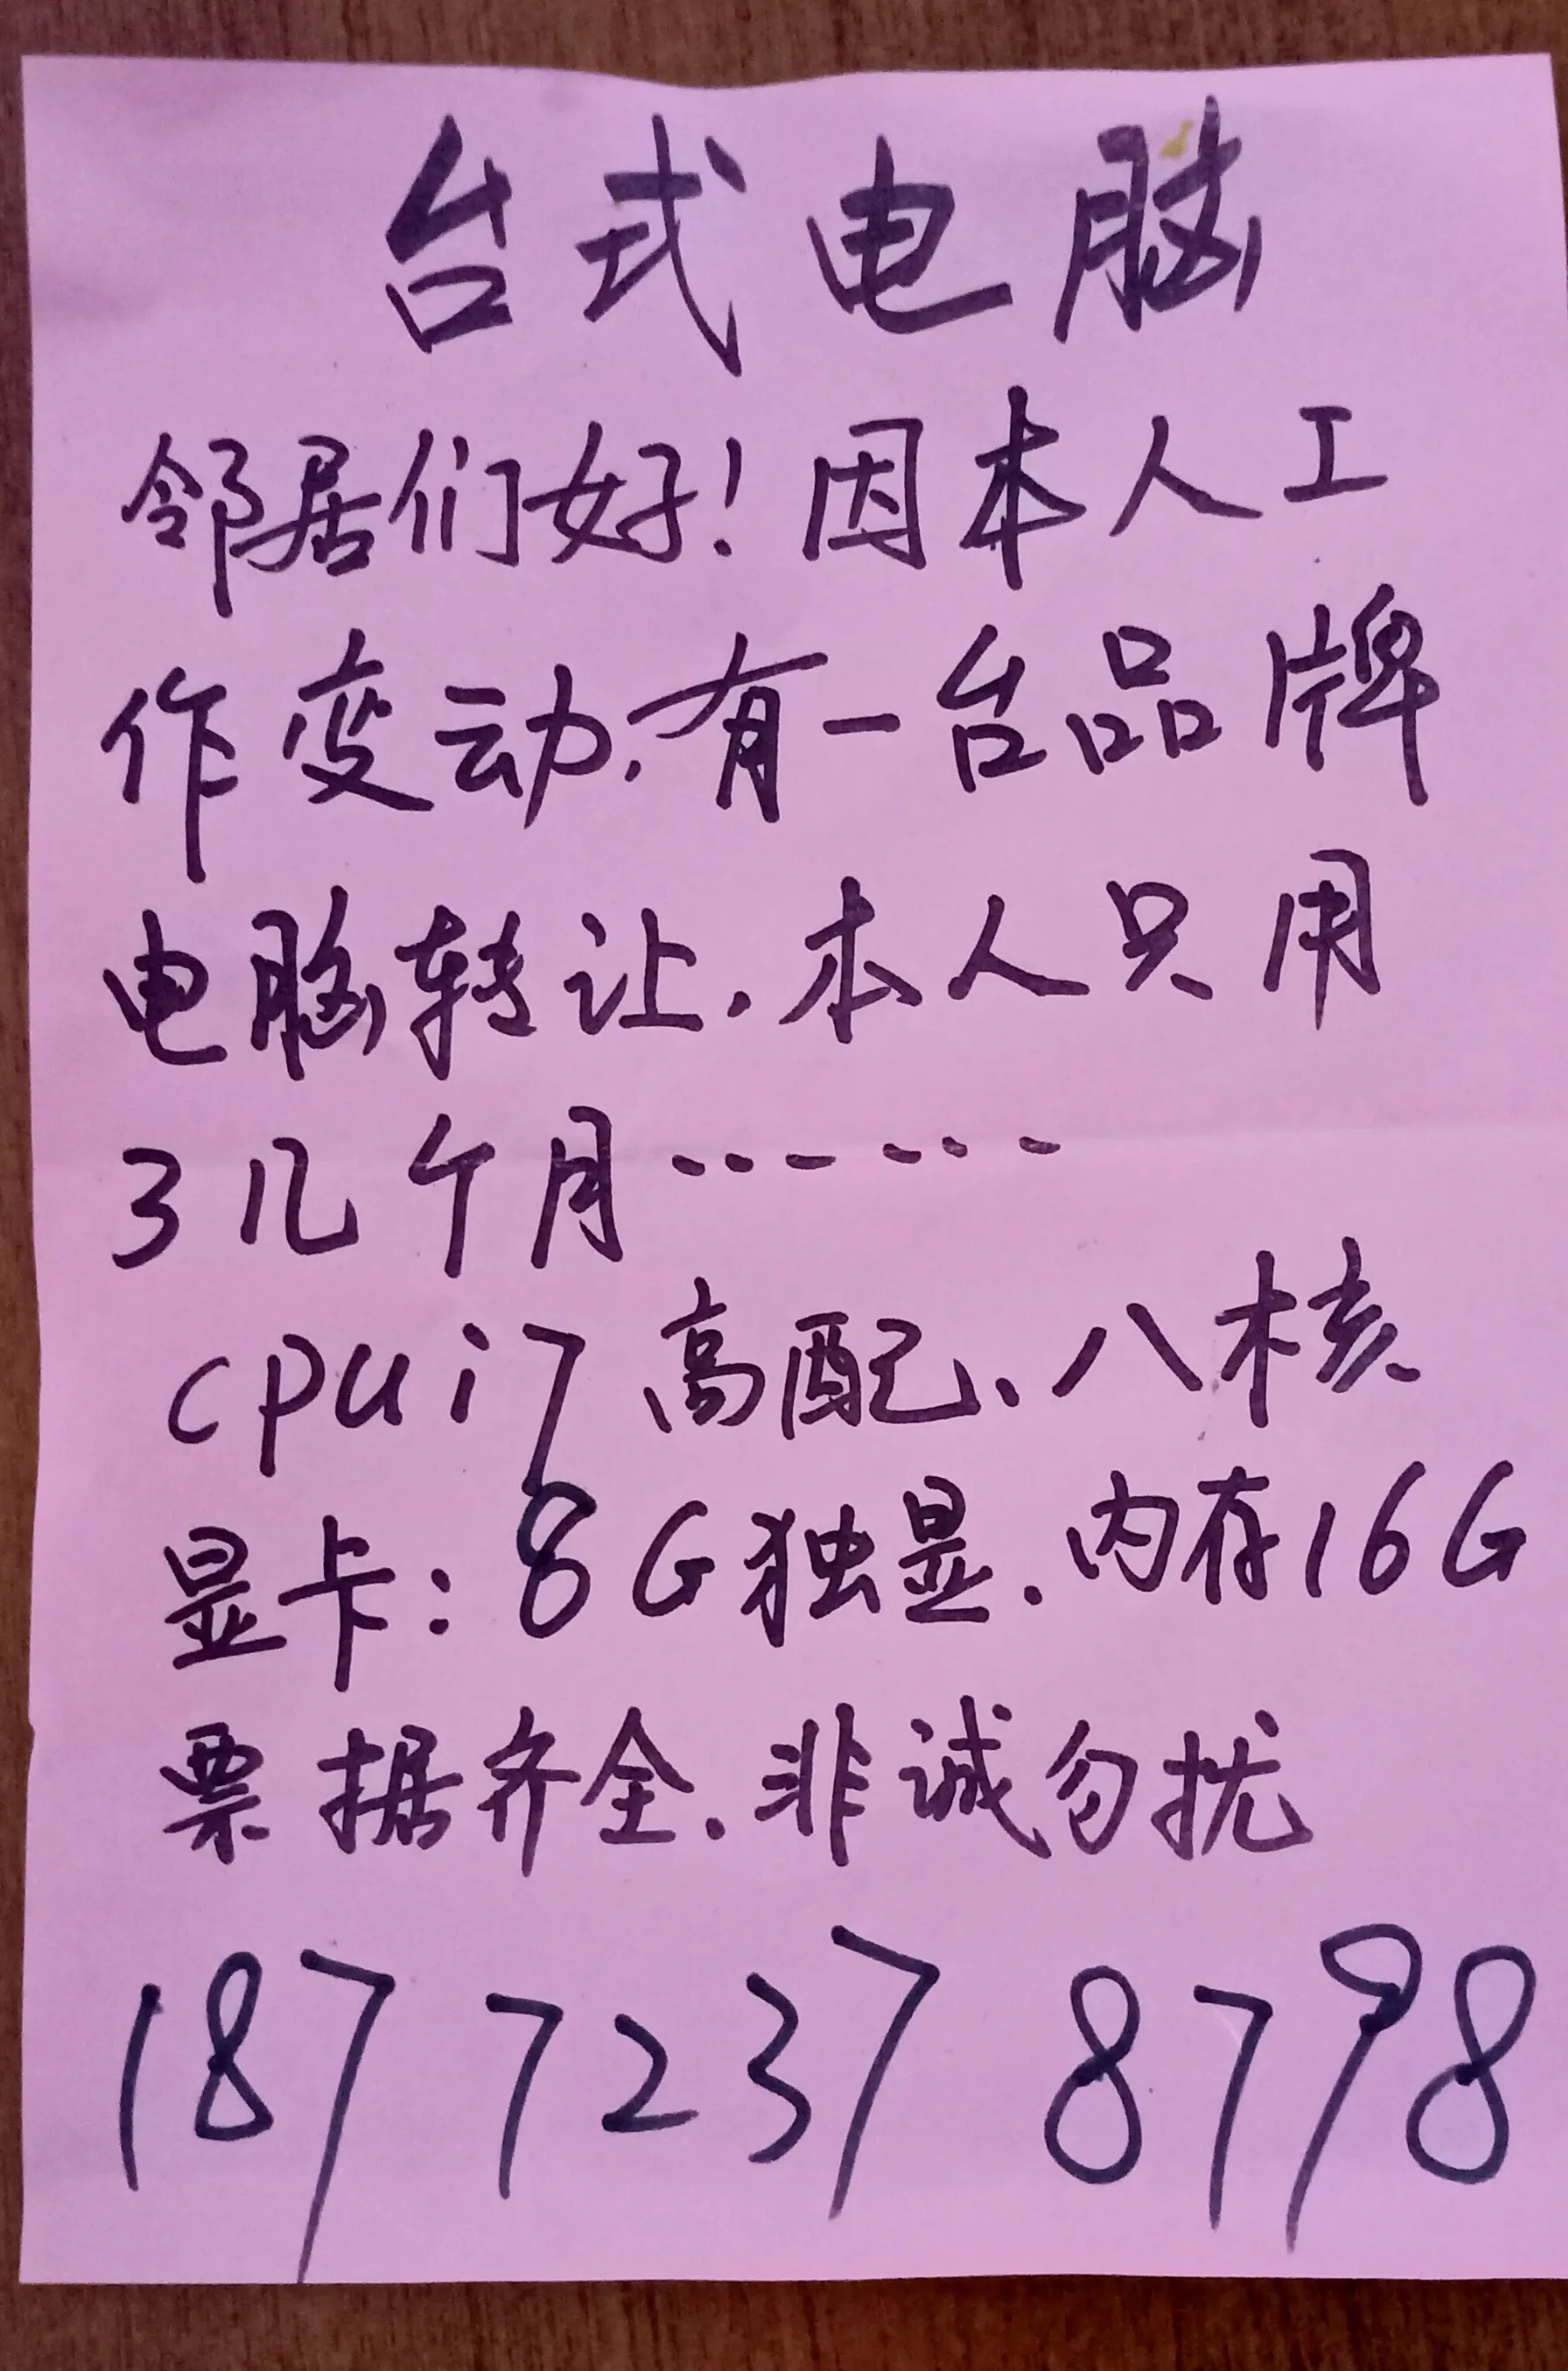 台式电脑
邻居们好！因本人工
作变动.有一台品牌
电脑转让.本人只用
了几个月……
cpu i7高配、八核
显卡:8G独显.内存16G
票据齐全.非诚勿扰
187 7237 8798